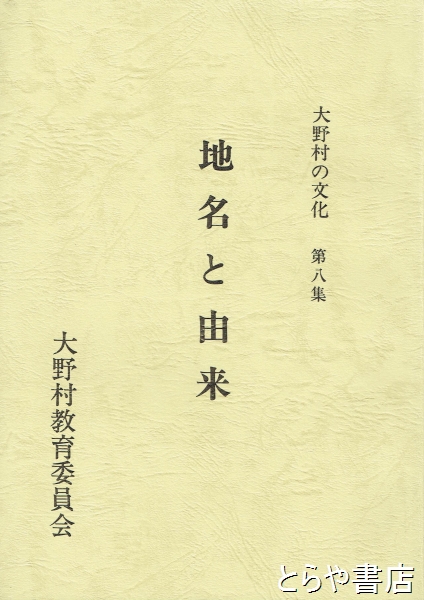 大野村の文化　第八集
地名と由来
大野村教育委員会
とらや書店